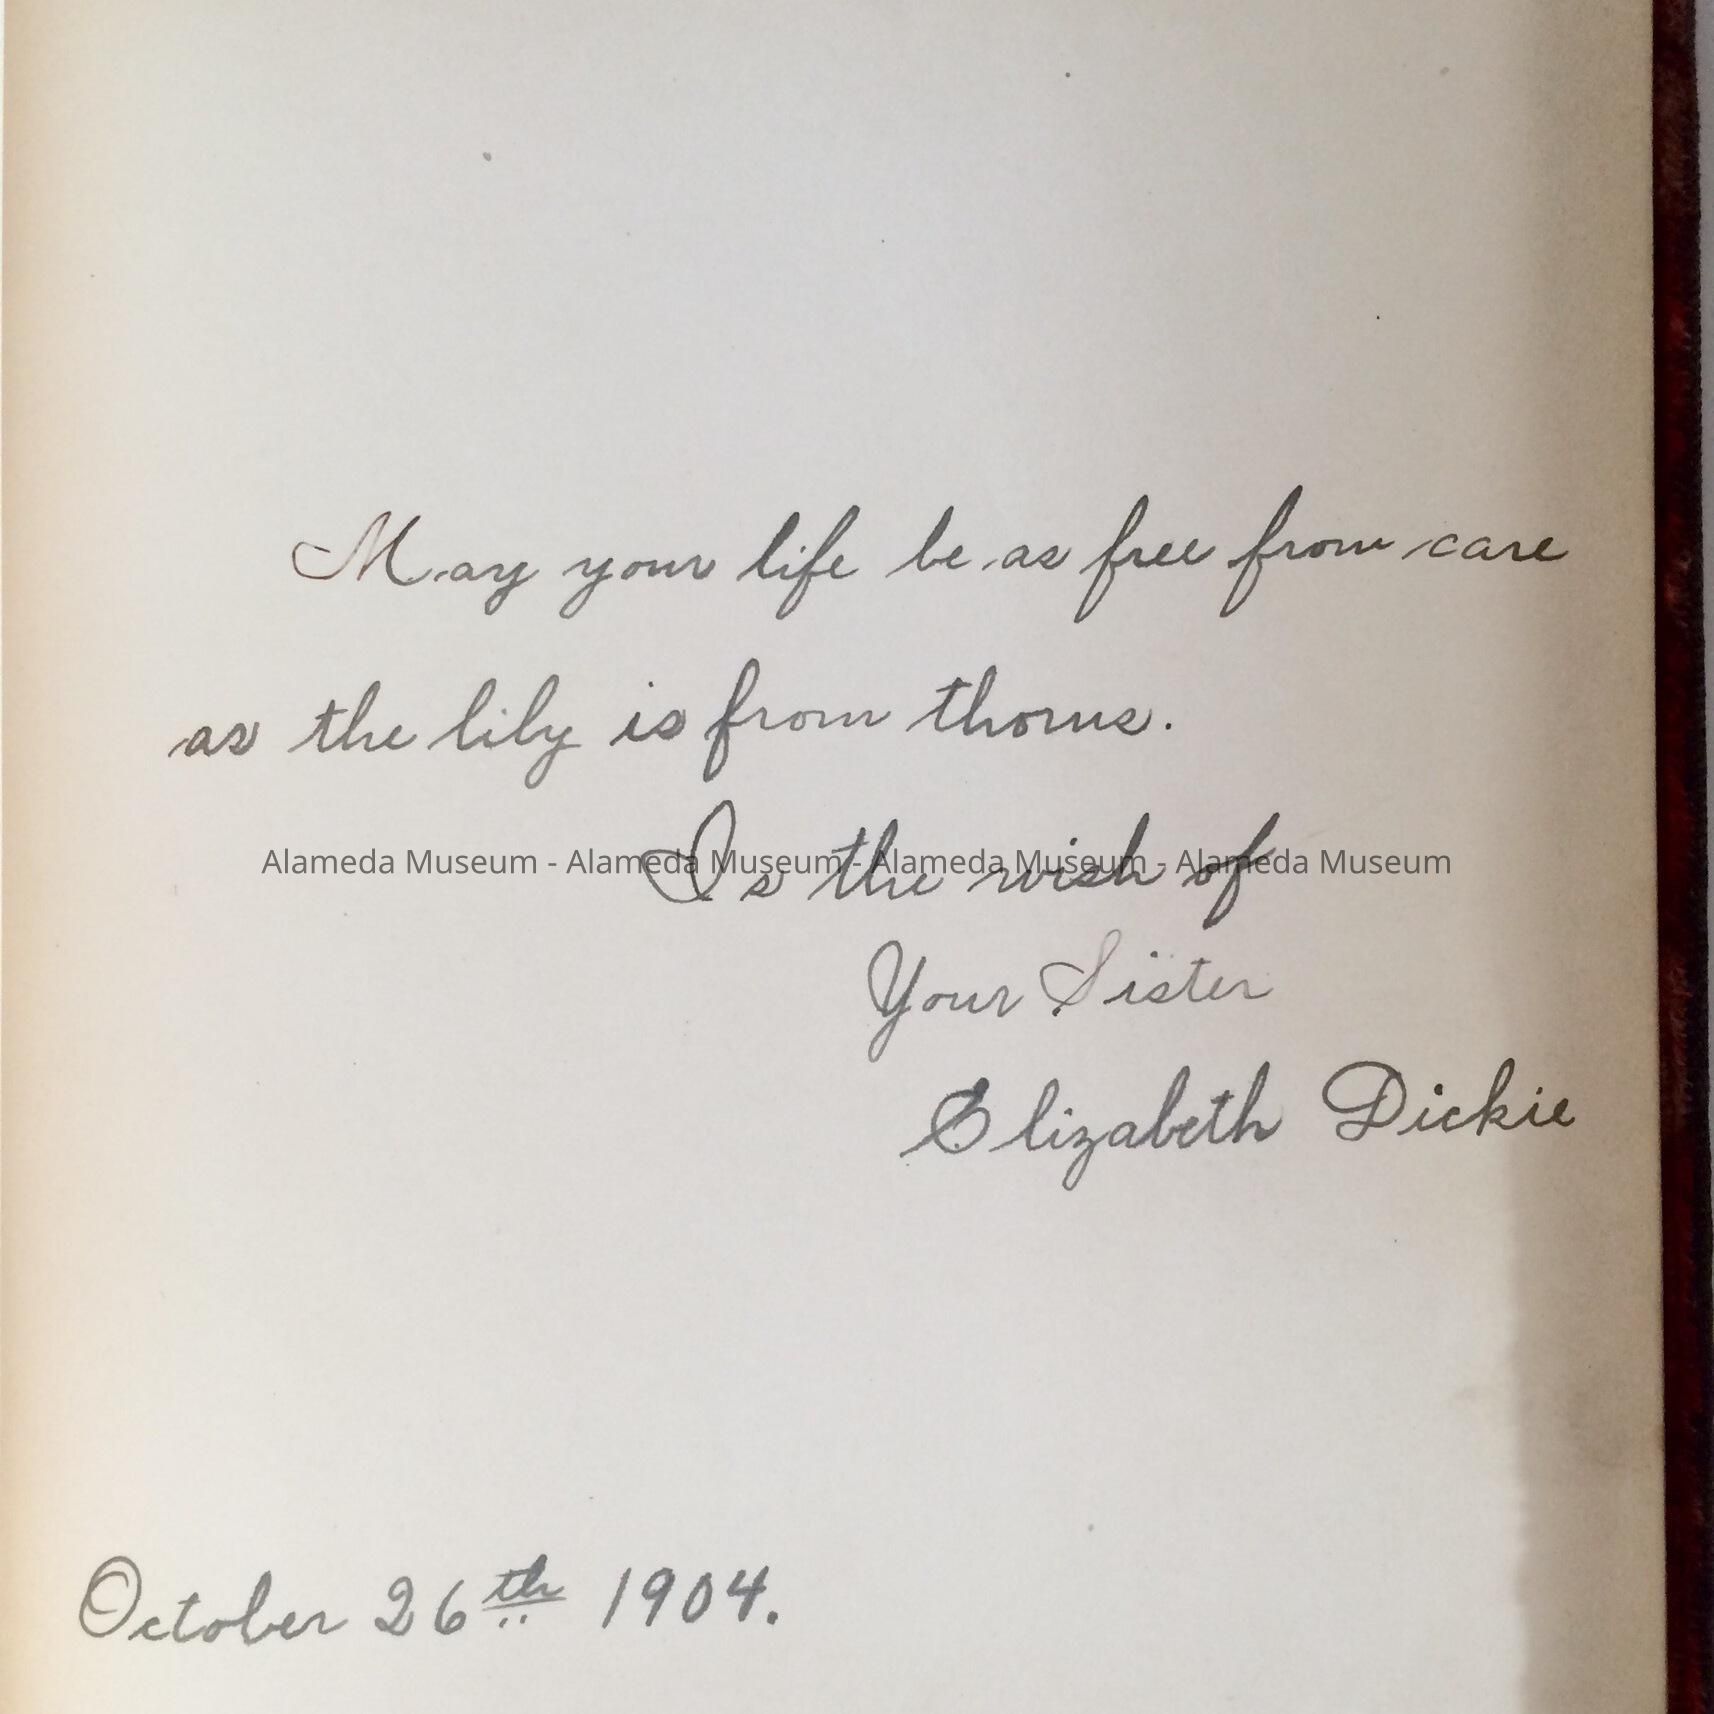 May your life be as free from care
as the lily is from thorns.
Is the wish of
Alameda Museum - Alameda Museum - Alameda Museum - Alameda Museum
Your Sister
Elizabeth Dickie
October 26th 1904.